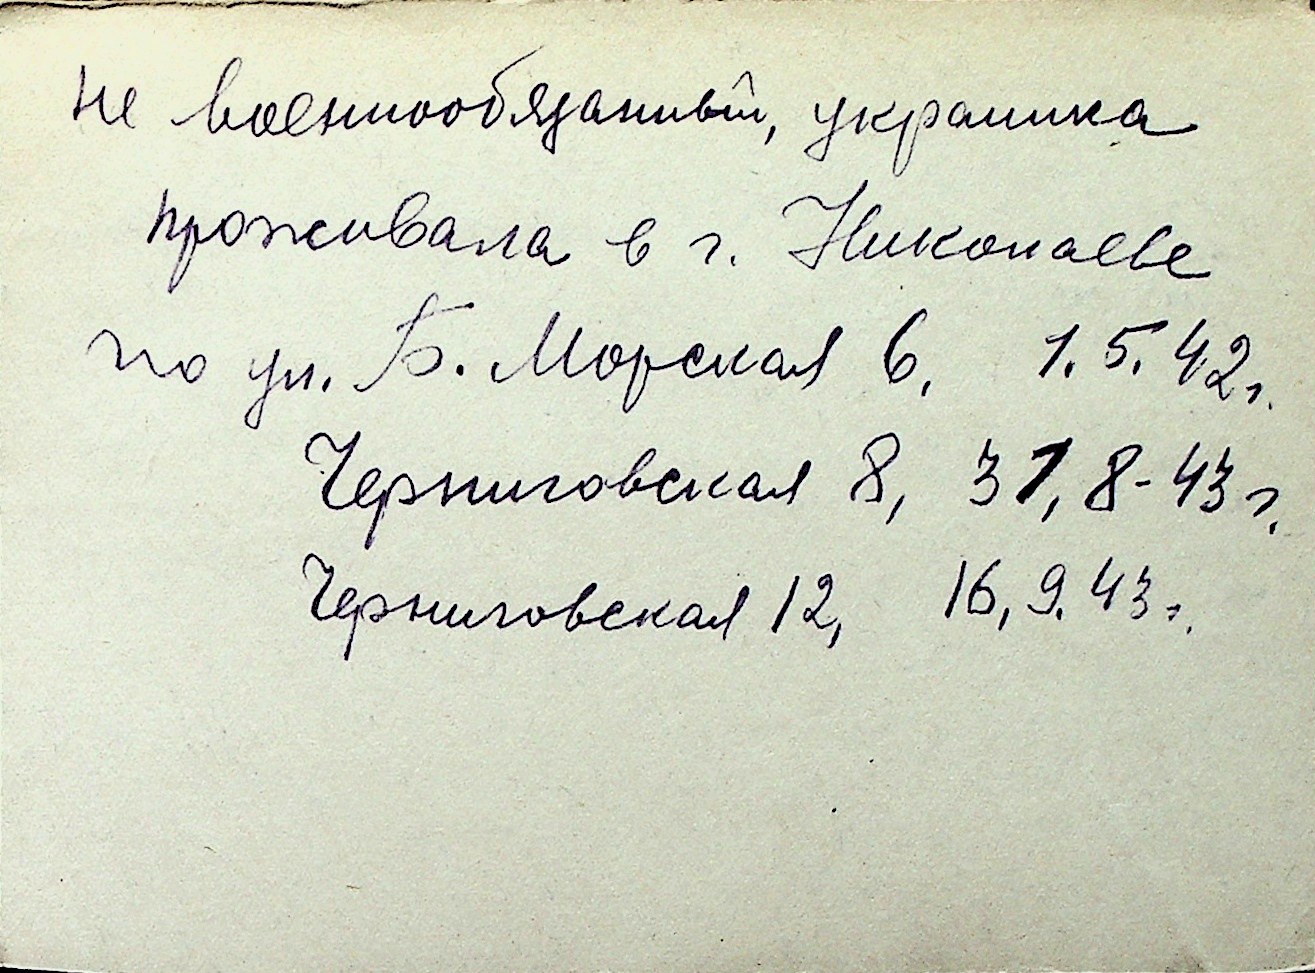 не военнообязанный, украинка
проживала в г. Николаеве
по ул. Б. Морская 6, 1.5.42г.
Черниговская 8, 31, 8-43г.
Черниговская 12, 16, 9.43г.